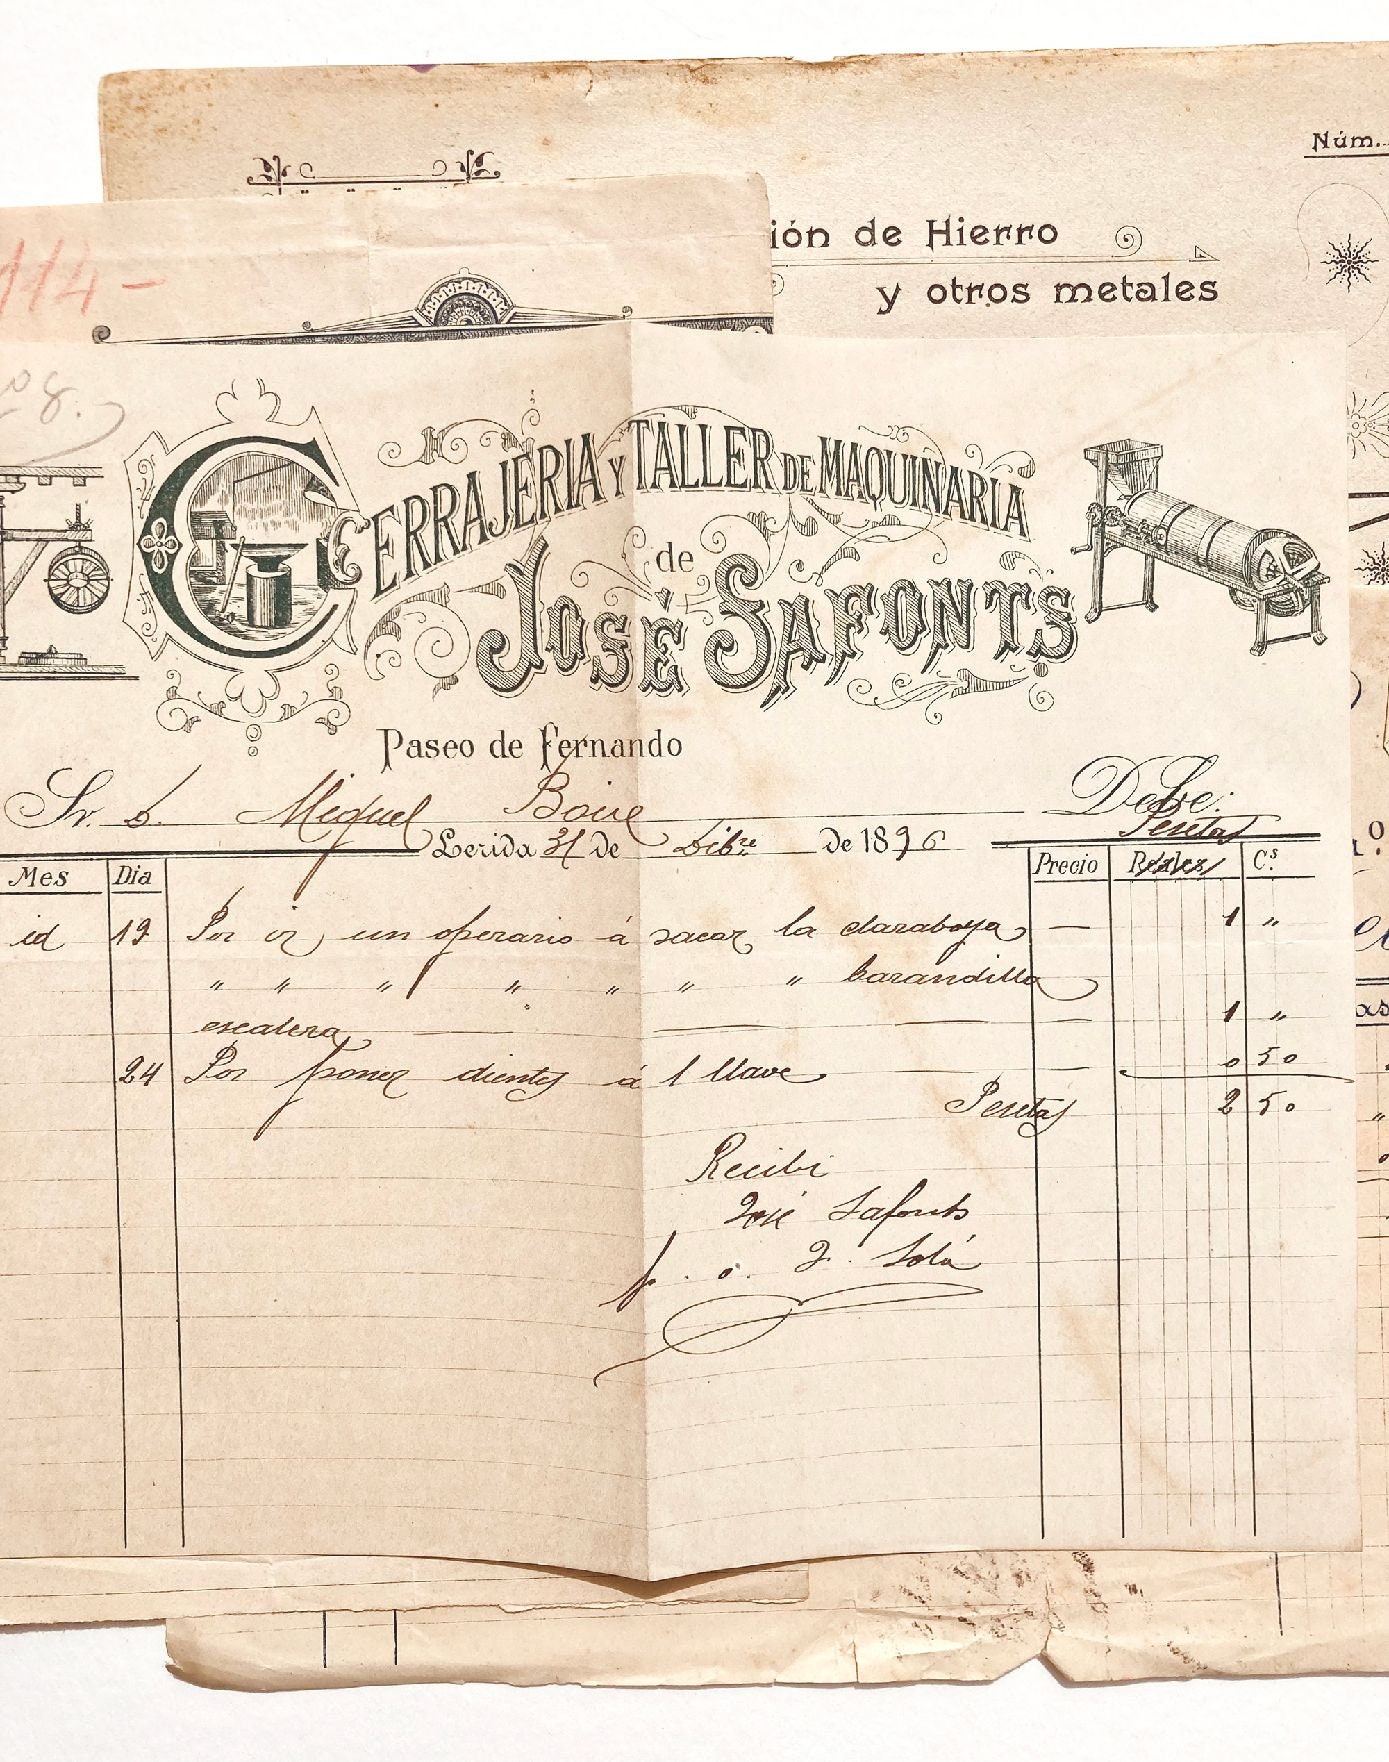 Núm.
ión de Hierro
y otros metales
114-
8.
CERRAJERIA Y TALLER DE MAQUINARIA
de
JOSÉ SAFONTS
Paseo de Fernando
Sr. D. Miguel Boixe Debe:
Pesetas
Lerida 31 de Dibre De 1896
Mes Dia Precio Reales Cs.
id 19 Por ir un operario á sacar la claraboya — 1 "
" " " " " " " barandilla
escalera — — — — 1 "
24 Por poner dientes á 1 llave — — 0 50
Pesetas 2 50
Recibi
José Safonts
p. o. J. Solá